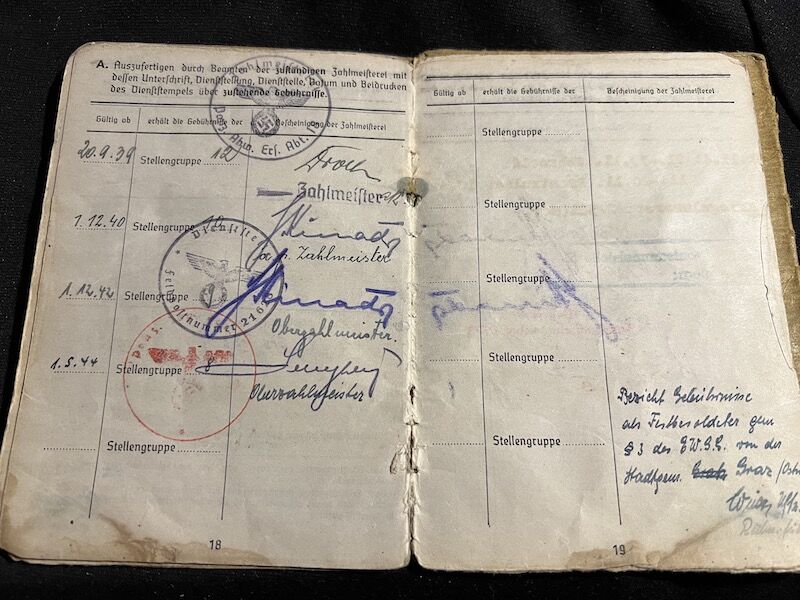 A. Auszufertigen durch Beamten der zuständigen Zahlmeisterei mit
dessen Unterschrift, Dienststellung, Dienststelle, Datum und Beidrucken
des Dienststempels über zustehende Gebührnisse.
Gültig ab erhält die Gebührnisse der Bescheinigung der Zahlmeisterei
20.9.39 Stellengruppe 12
Zahlmeister
1.12.40 Stellengruppe 10
Zahlmeister
Dienststelle
Feldpostnummer
1.12.42 Stellengruppe
Oberzahlmeister.
1.5.44 Stellengruppe
Oberzahlmeister
Stellengruppe
18
Gültig ab erhält die Gebührnisse der Bescheinigung der Zahlmeisterei
Stellengruppe
Stellengruppe
Stellengruppe
Stellengruppe
Bezieht Gebührnisse
als Festbesoldeter gem
§ 3 des E.W.G.G. von der
Stadtgem. Graz
Stellengruppe
19